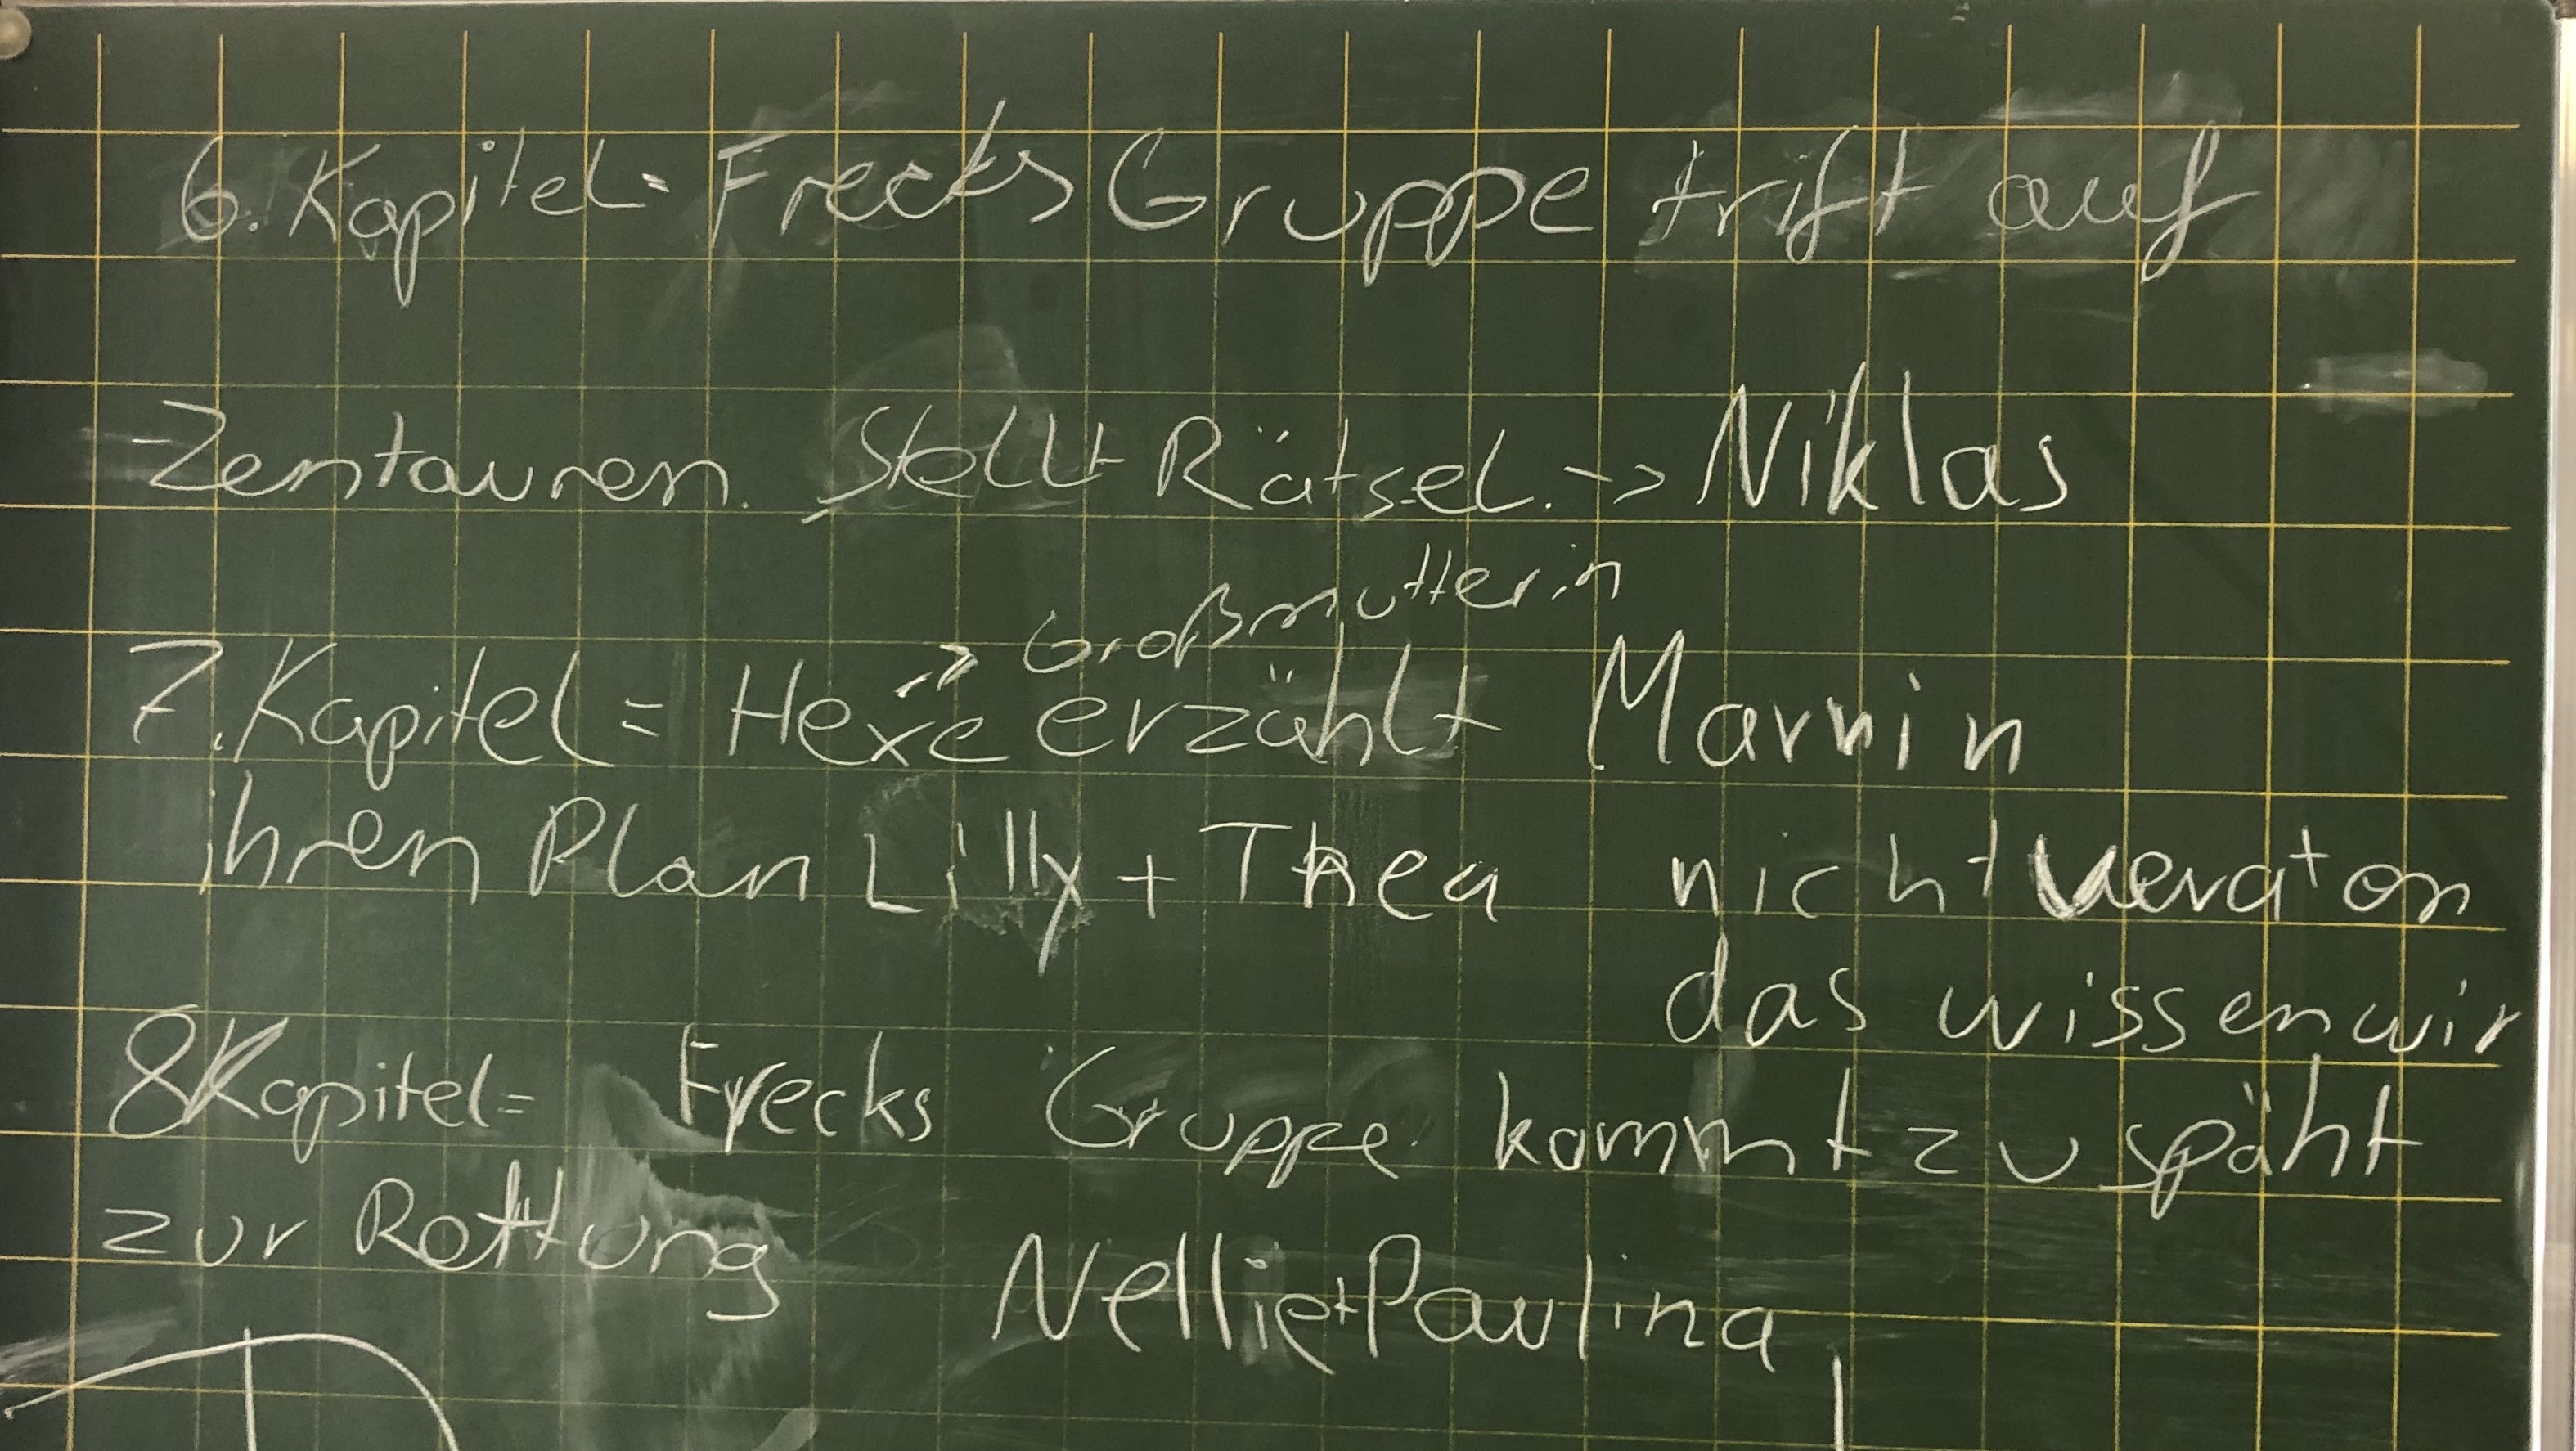 6. Kapitel= Frecks Gruppe trift auf
Zentauren. Stellt Rätsel. -> Niklas
-> Großmutterin
7. Kapitel = Hexe erzählt Marvin
ihren Plan Lilly + Thea nicht veraten
das wissen wir
8 Kapitel= Frecks Gruppe kommt zu späht
zur Rettung Nellie+Paulina